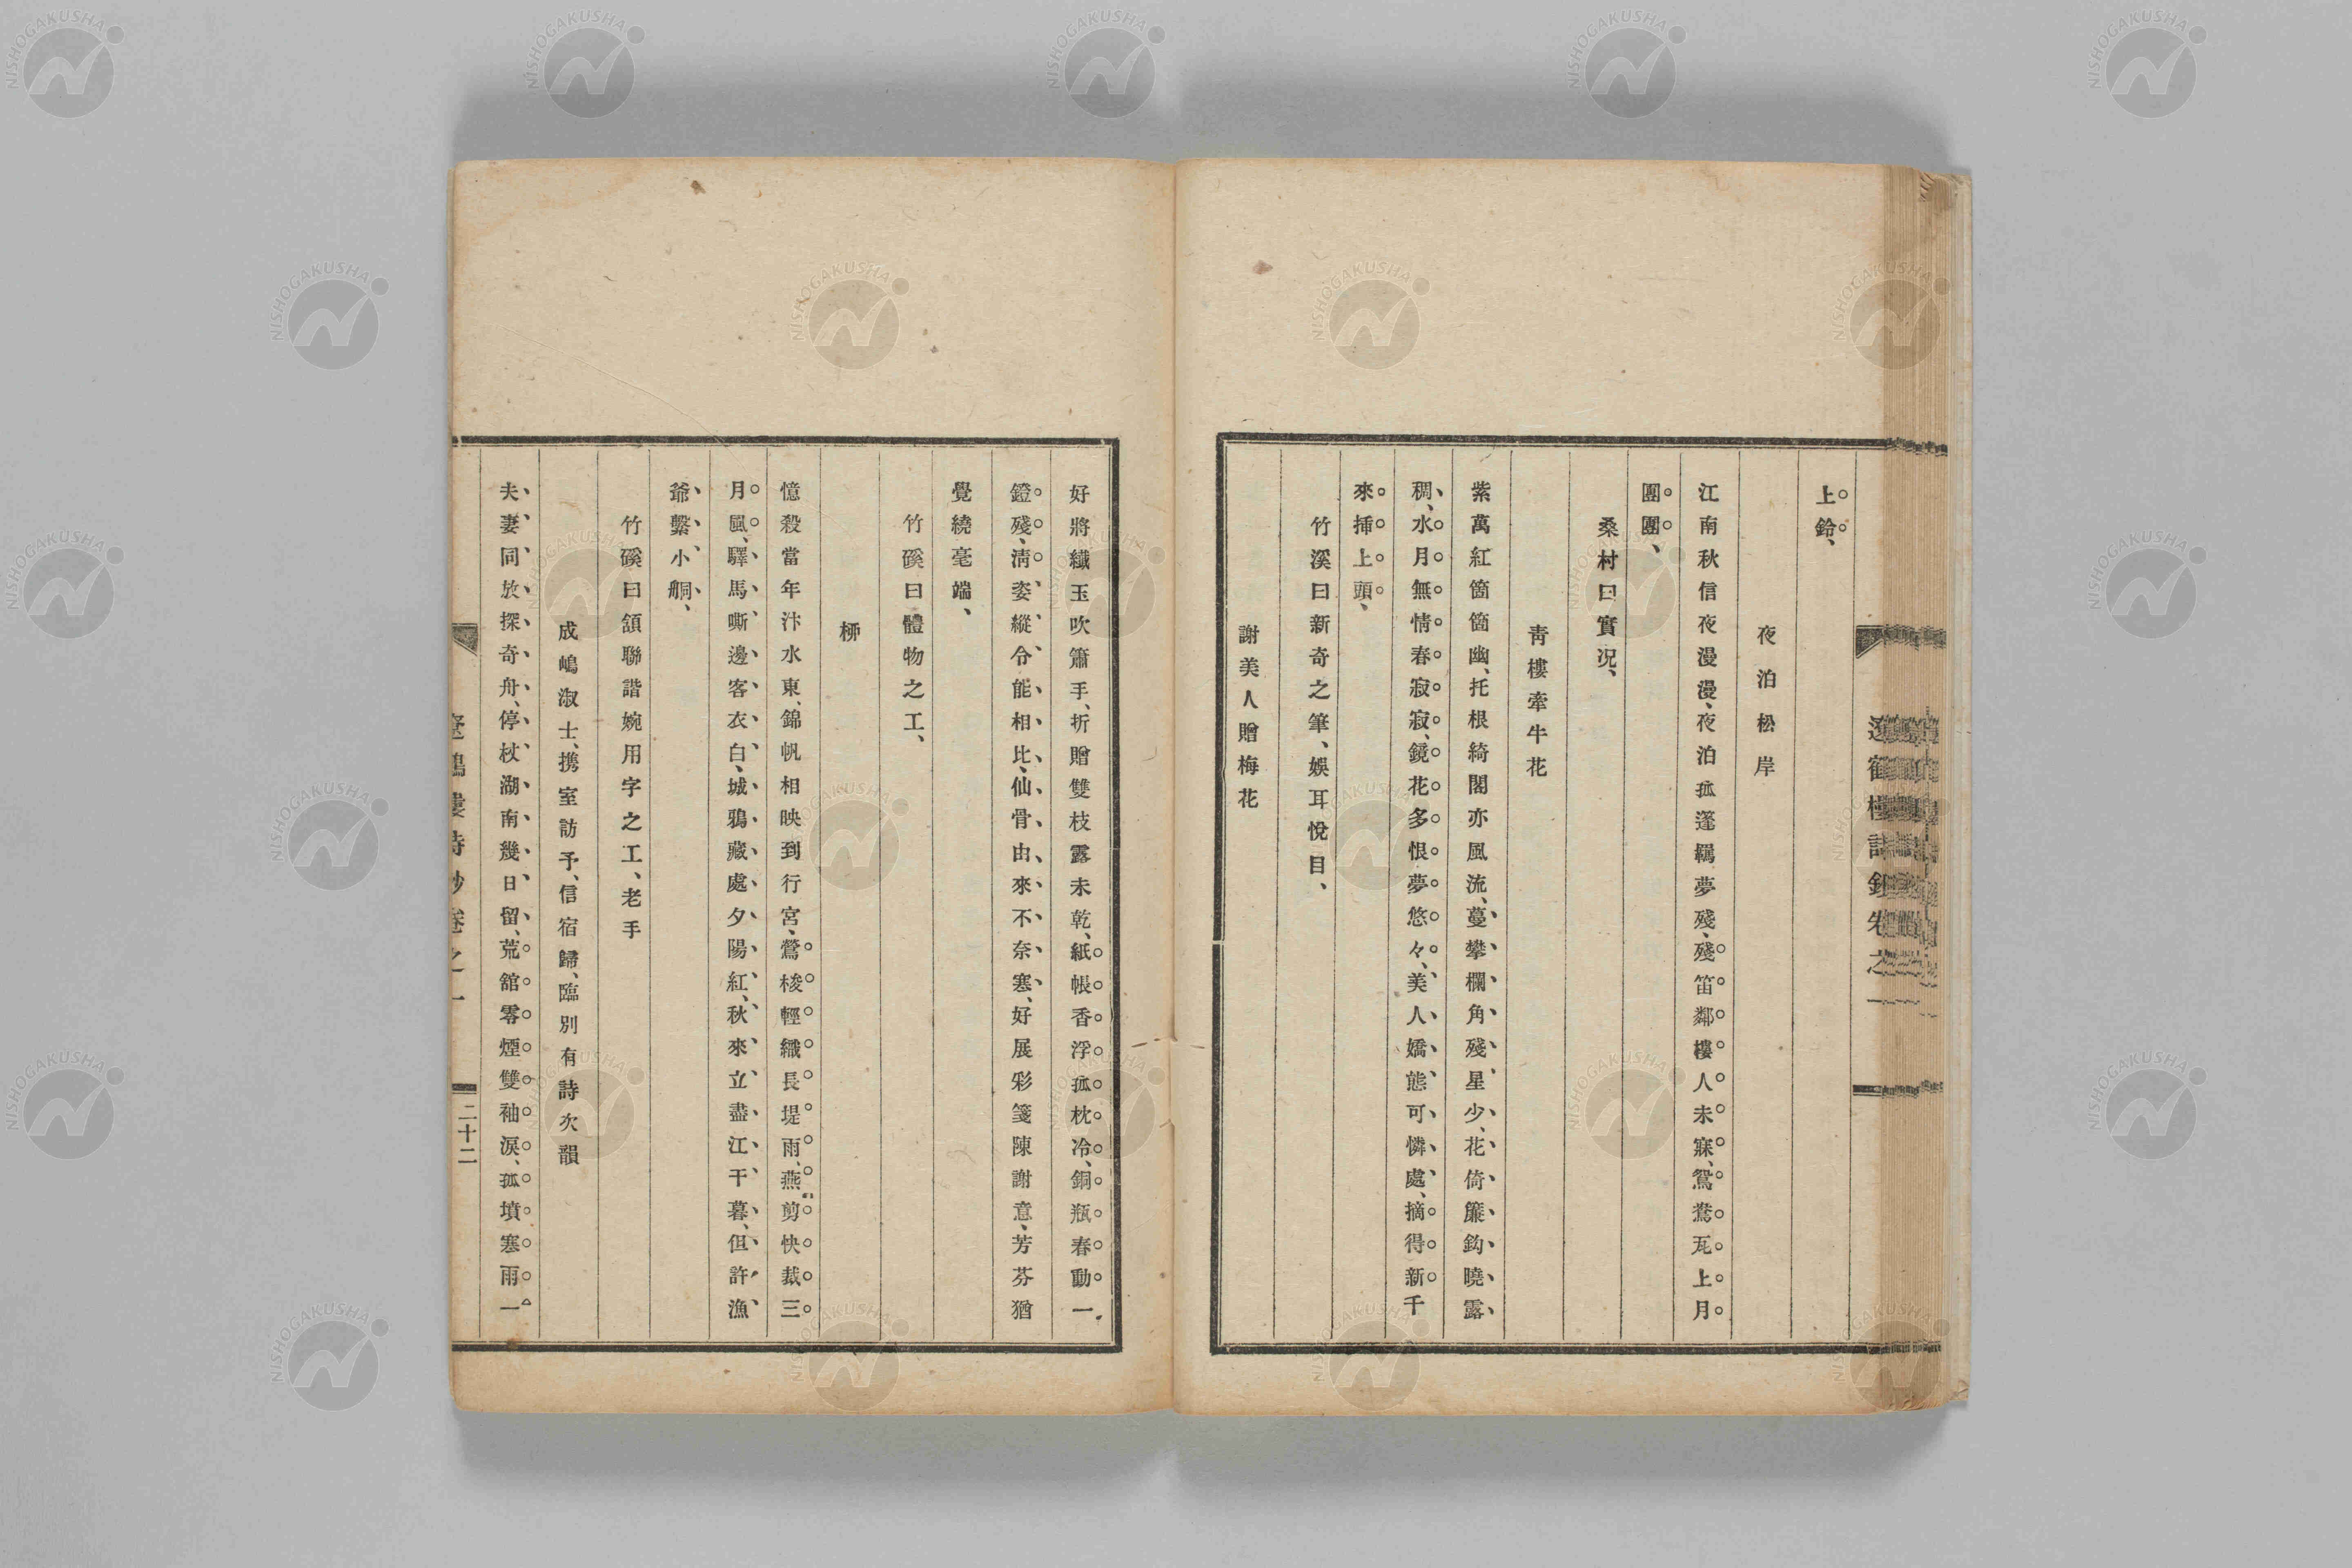 上鈴、
夜泊松岸
江南秋信夜漫漫、夜泊孤篷羈夢殘、殘笛鄰樓人未寐、鴛鴦瓦上月
團團、
桑村曰實況、
靑樓牽牛花
紫萬紅箇箇幽、托根綺閣亦風流、蔓攀欄角殘星少、花倚簾鈎曉露
稠、水月無情春寂寂、鏡花多恨夢悠々、美人嬌態可憐處、摘得新千
來揷上頭、
竹溪曰新奇之筆、娛耳悅目、
謝美人贈梅花
好將纖玉吹簫手、折贈雙枝露未乾、紙帳香浮孤枕冷、銅瓶春動一
鐙殘、淸姿縱令能相比、仙骨由來不奈寒、好展彩箋陳謝意、芬芳猶
覺繞毫端、
竹磎曰體物之工、
柳
憶殺當年汴水東、錦帆相映到行宮、鶯梭輕織長堤雨、燕剪快裁三
月風、驛馬嘶邊客衣白、城鴉藏處夕陽紅、秋來立盡江干暮、但許漁
爺繫小艒、
竹磎曰頷聯諧婉用字之工、老手
成嶋淑士、携室訪予、信宿歸、臨別有詩次韻
夫妻同放探奇舟、停杖湖南幾日留、荒舘零煙雙袖淚、孤墳寒雨一
二十二
NISHOGAKUSHA